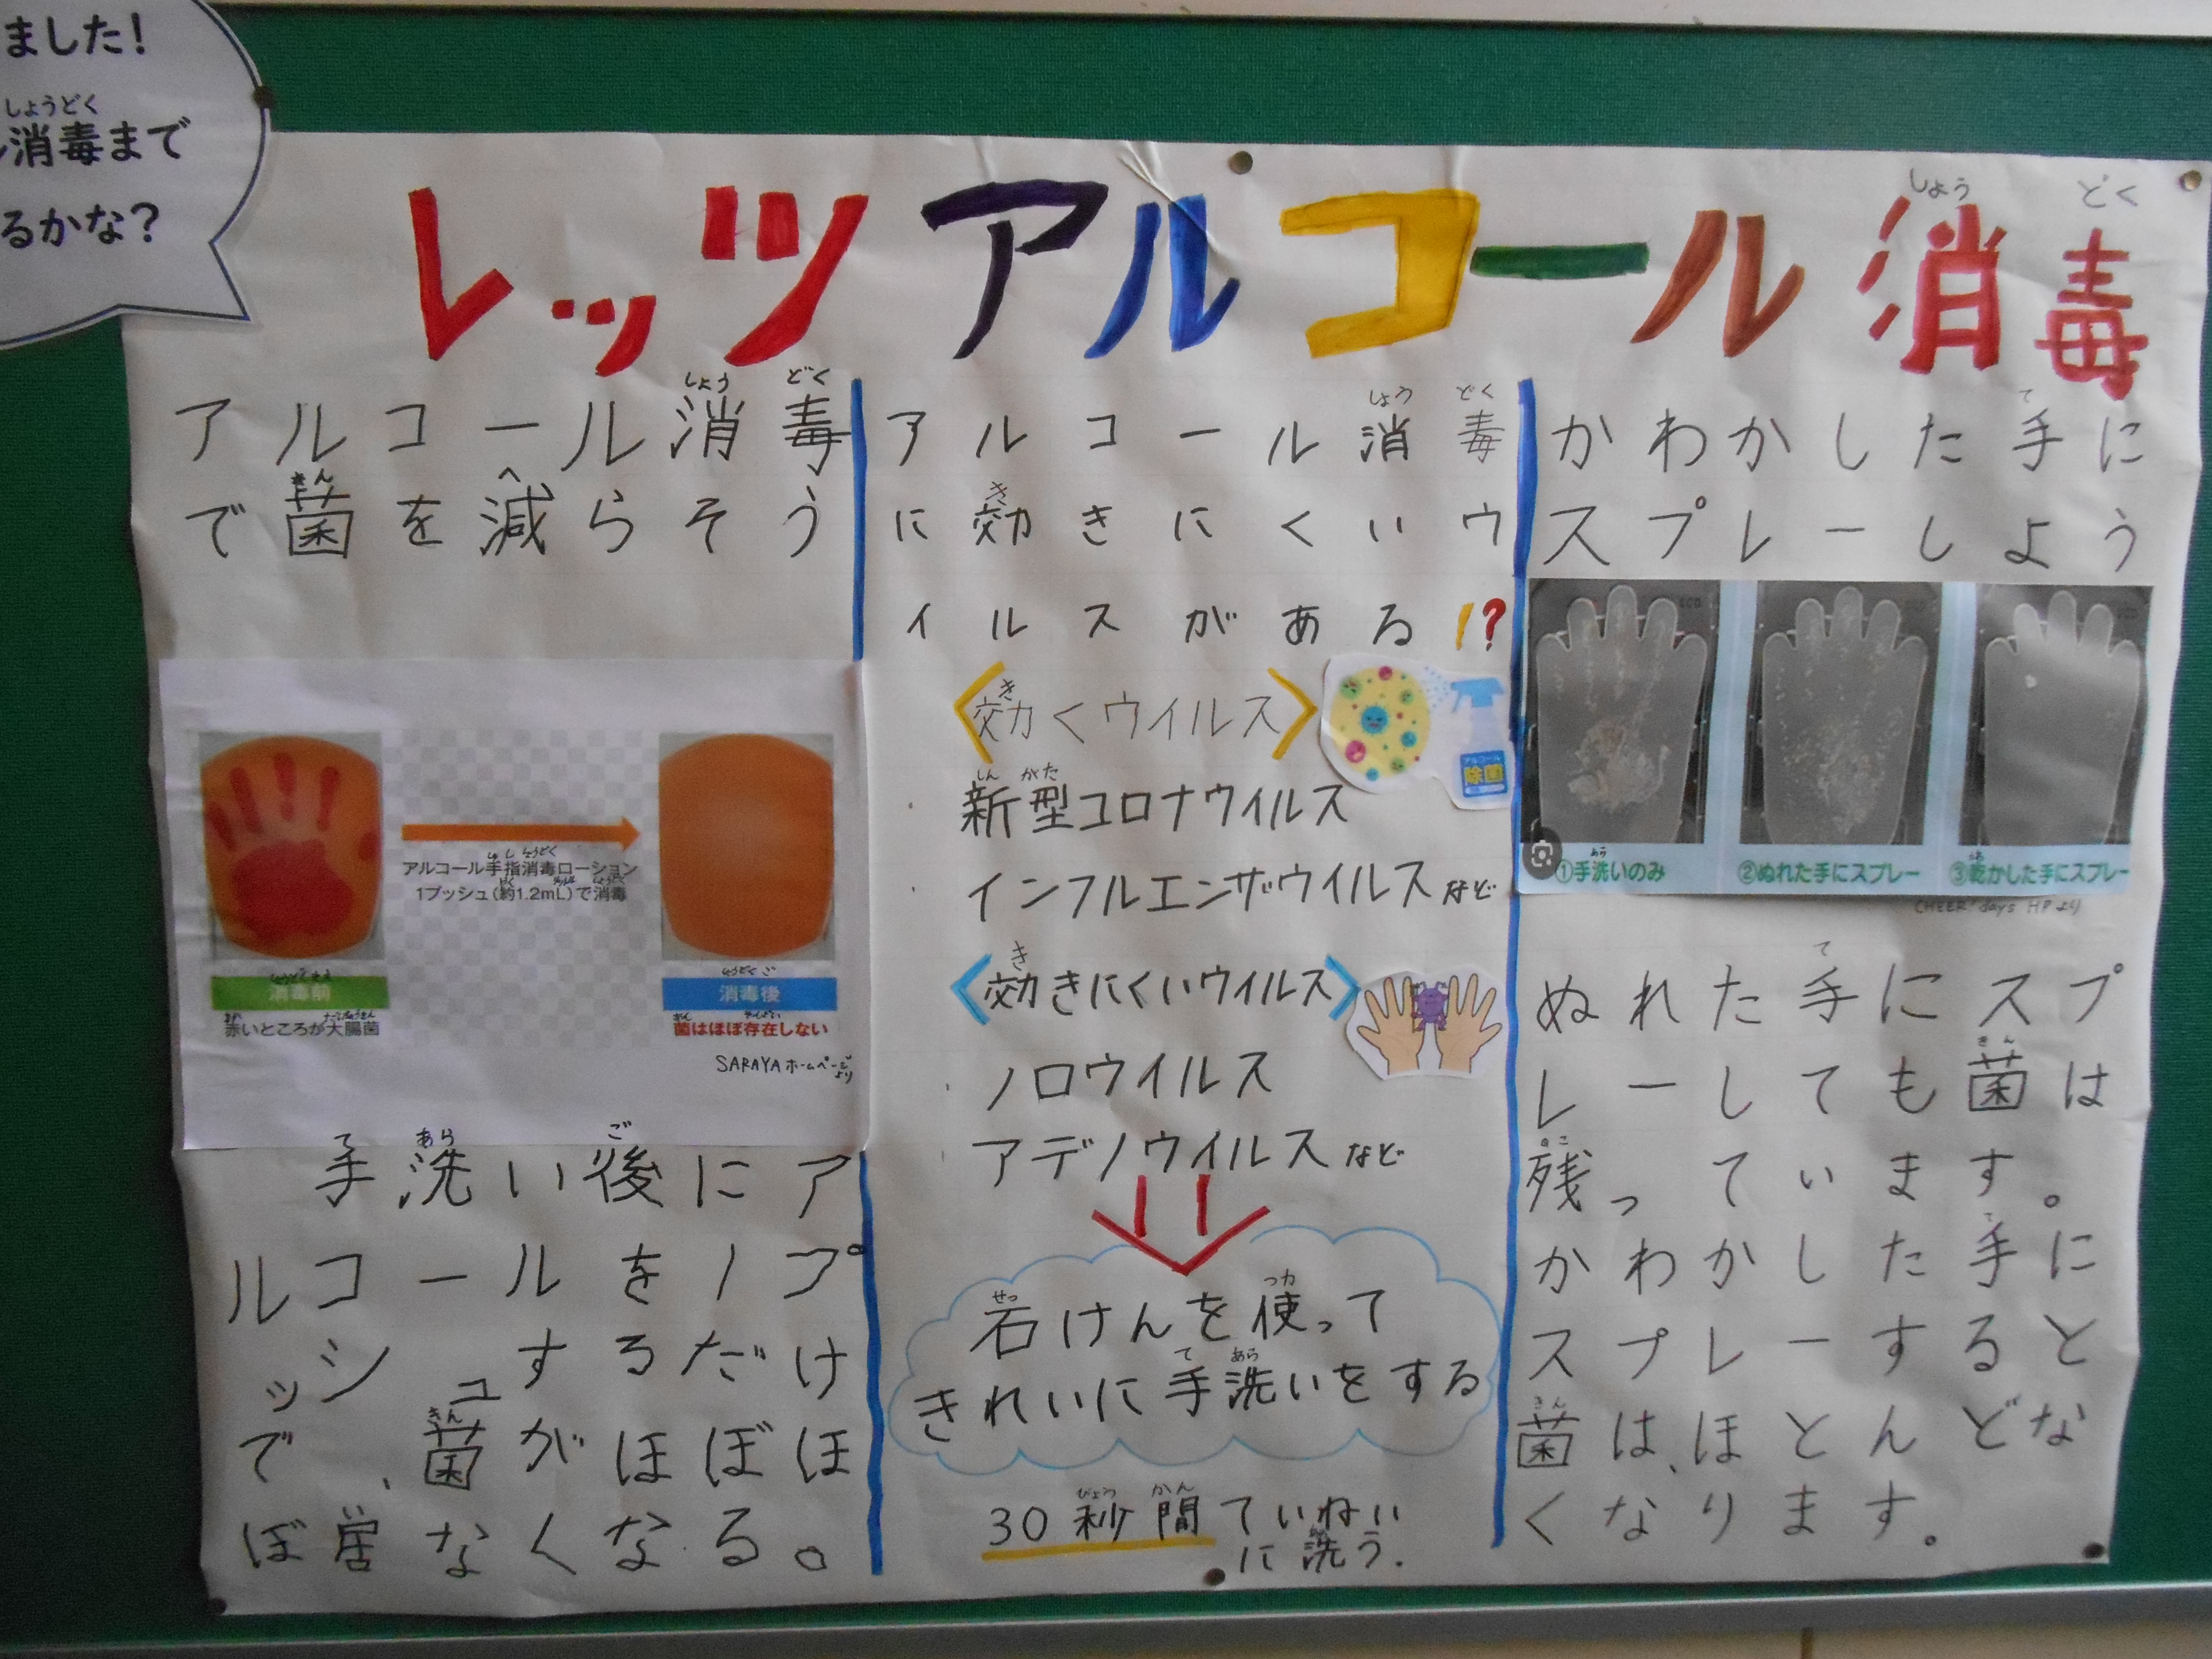 ました!
しょうどく
消毒まで
るかな?
しょう どく
レッツアルコール消毒
しょう どく
アルコール消毒
きん へ
で菌を減らそう
アルコール手指消毒ローション
1プッシュ(約1.2mL)で消毒
消毒前
赤いところが大腸菌
しょうどくご
消毒後
菌はほぼ存在しない
SARAYAホームページより
て あら ご
手洗い後にア
ルコールを1プ
ッシュするだけ
きん
で、菌がほぼほ
ぼなくなる。
しょう どく
アルコール消毒
き
に効きにくいウ
イルスがある!?
き
〈効くウイルス〉
アルコール
除菌
しん がた
・新型コロナウイルス
・インフルエンザウイルスなど
き
〈効きにくいウイルス〉
・ノロウイルス
アデノウイルスなど
せっ つか
石けんを使って
て あら
きれいに手洗いをする
びょう かん
30秒間ていねい
に洗う.
て
かわかした手に
スプレーしよう
あら
①手洗いのみ
②ぬれた手にスプレー
③乾かした手にスプレー
CHEER!days HPより
て
ぬれた手にスプ
きん
レーしても菌は
のこ
残っています。
て
かわかした手に
スプレーすると
きん
菌は、ほとんどな
くなります。